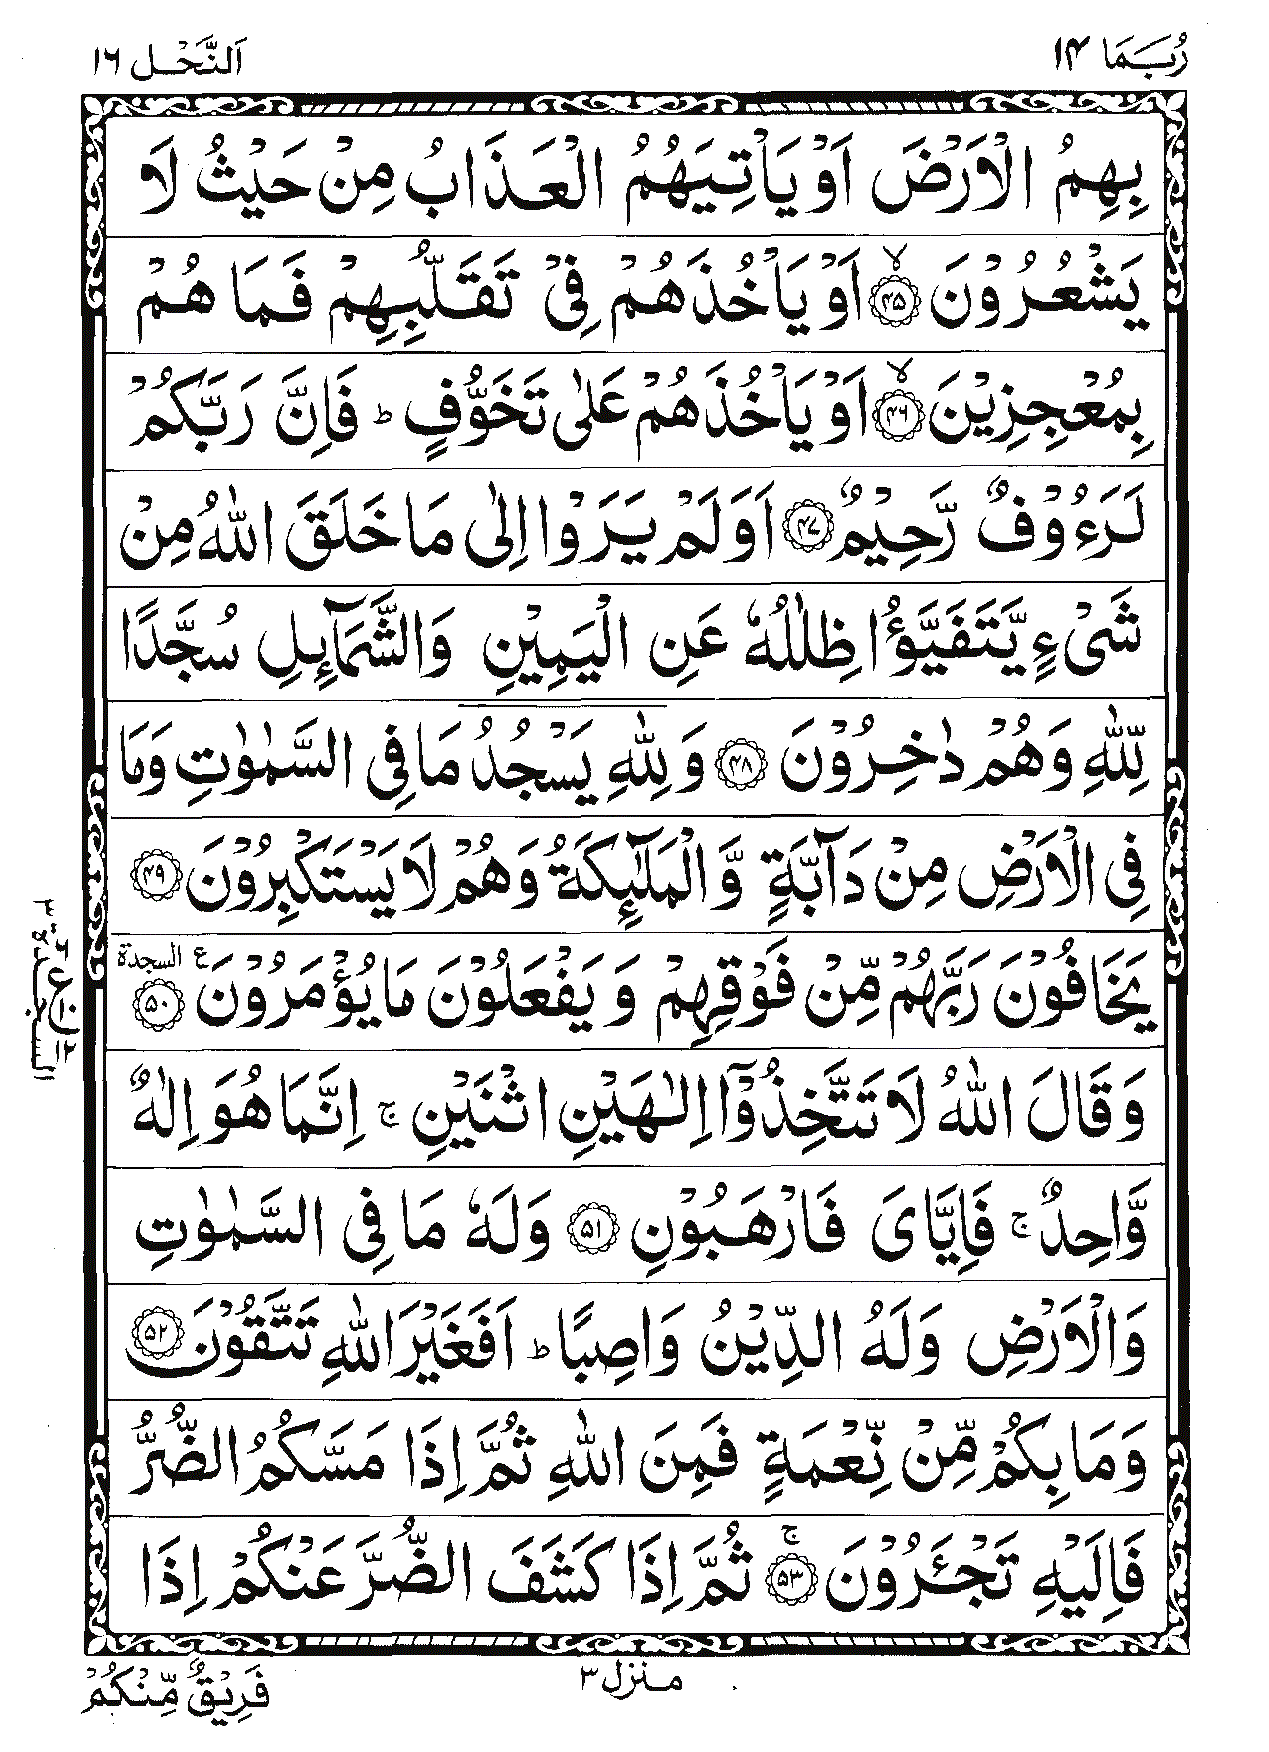 رُبَمَا ١۴
اَلنَّحْل ١٦
بِهِمُ الْاَرْضَ اَوْ يَاْتِيَهُمُ الْعَذَابُ مِنْ حَيْثُ لَا
يَشْعُرُوْنَ ۙ﴿۴۵﴾ اَوْ يَاْخُذَهُمْ فِيْ تَقَلُّبِهِمْ فَمَا هُمْ
بِمُعْجِزِيْنَ ۙ﴿۴۶﴾ اَوْ يَاْخُذَهُمْ عَلٰى تَخَوُّفٍ ؕ فَاِنَّ رَبَّكُمْ
لَرَءُوْفٌ رَّحِيْمٌ ﴿۴۷﴾ اَوَلَمْ يَرَوْا اِلٰى مَا خَلَقَ اللّٰهُ مِنْ
شَيْءٍ يَّتَفَيَّؤُا ظِلٰلُهٗ عَنِ الْيَمِيْنِ وَالشَّمَآئِلِ سُجَّدًا
لِّلّٰهِ وَهُمْ دٰخِرُوْنَ ﴿۴۸﴾ وَلِلّٰهِ يَسْجُدُ مَا فِي السَّمٰوٰتِ وَمَا
فِي الْاَرْضِ مِنْ دَآبَّةٍ وَّالْمَلٰٓئِكَةُ وَهُمْ لَا يَسْتَكْبِرُوْنَ ﴿۴۹﴾
يَخَافُوْنَ رَبَّهُمْ مِّنْ فَوْقِهِمْ وَيَفْعَلُوْنَ مَا يُؤْمَرُوْنَ ﴿۵۰﴾ ع السجدة
وَقَالَ اللّٰهُ لَا تَتَّخِذُوْٓا اِلٰـهَيْنِ اثْنَيْنِ ۚ اِنَّمَا هُوَ اِلٰهٌ
وَّاحِدٌ ۚ فَاِيَّايَ فَارْهَبُوْنِ ﴿۵۱﴾ وَلَهٗ مَا فِي السَّمٰوٰتِ
وَالْاَرْضِ وَلَهُ الدِّيْنُ وَاصِبًا ؕ اَفَغَيْرَ اللّٰهِ تَتَّقُوْنَ ﴿۵۲﴾
وَمَا بِكُمْ مِّنْ نِّعْمَةٍ فَمِنَ اللّٰهِ ثُمَّ اِذَا مَسَّكُمُ الضُّرُّ
فَاِلَيْهِ تَجْئَرُوْنَ ۚ﴿۵۳﴾ ثُمَّ اِذَا كَشَفَ الضُّرَّ عَنْكُمْ اِذَا
منزل ٣
فَرِيْقٌ مِّنْكُمْ
السجدة ٣